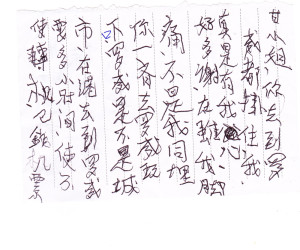 甘小姐你去到罗
威都掛住我
真是有我心
好多謝在我脚
痛不是我同埋
你一齐去罗威玩
下罗威是不是城
市在港去到罗威
要多小时间使不
使轉机几錢机票